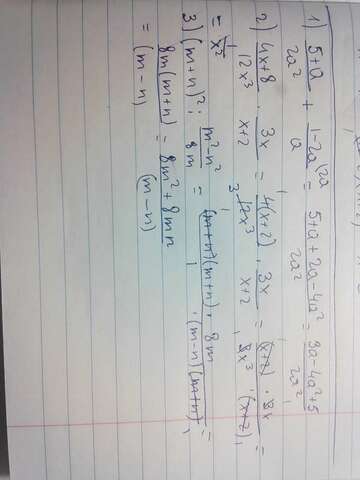 1) (5+a)/(2a²) + (1-2a)/a (2a = (5+a+2a-4a²)/(2a²) = (3a-4a²+5)/(2a²)
2) (4x+8)/(12x³) · 3x/(x+2) = 4(x+2)/(12x³) · 3x/(x+2) = (x+2)/(3x³) · 3x/(x+2) =
= 1/x³
3) (m+n)² : (m²-n²)/(8m) = (m+n)(m+n)/1 · 8m/((m-n)(m+n)) =
= 8m(m+n)/(m-n) = (8m²+8mn)/(m-n)